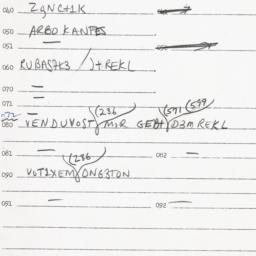 040 ZqNC+1K
050 ARBOKANTES
051
060 RUBASZK3 /)+REKL
070
071
072
080 VENDUVOST(236)MıR GEDH(571)(599)D3MREKL
081 082
090 VOT1XEM(286)ONG3TON
091 092